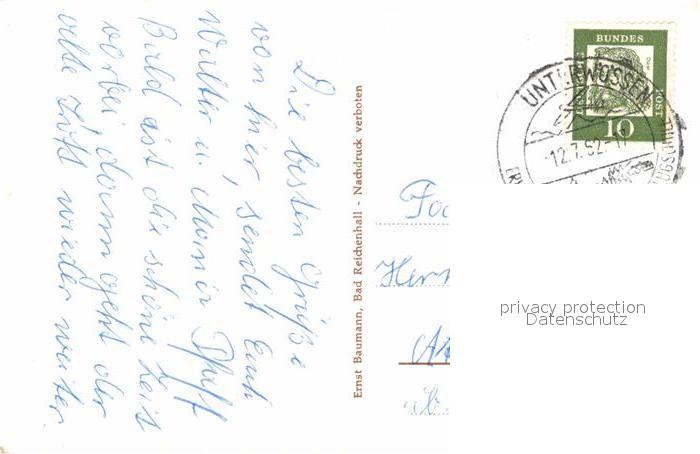 Die besten Grüße
von hier, sendet Euch
Walter u. Maria
Bald ist die schöne Zeit
vorbei, dann geht der
alte Trott wieder weiter.
Ernst Baumann, Bad Reichenhall - Nachdruck verboten
BUNDES
POST
10
UNTERWÖSSEN
12.7.62-17
Herr
privacy protection
Datenschutz